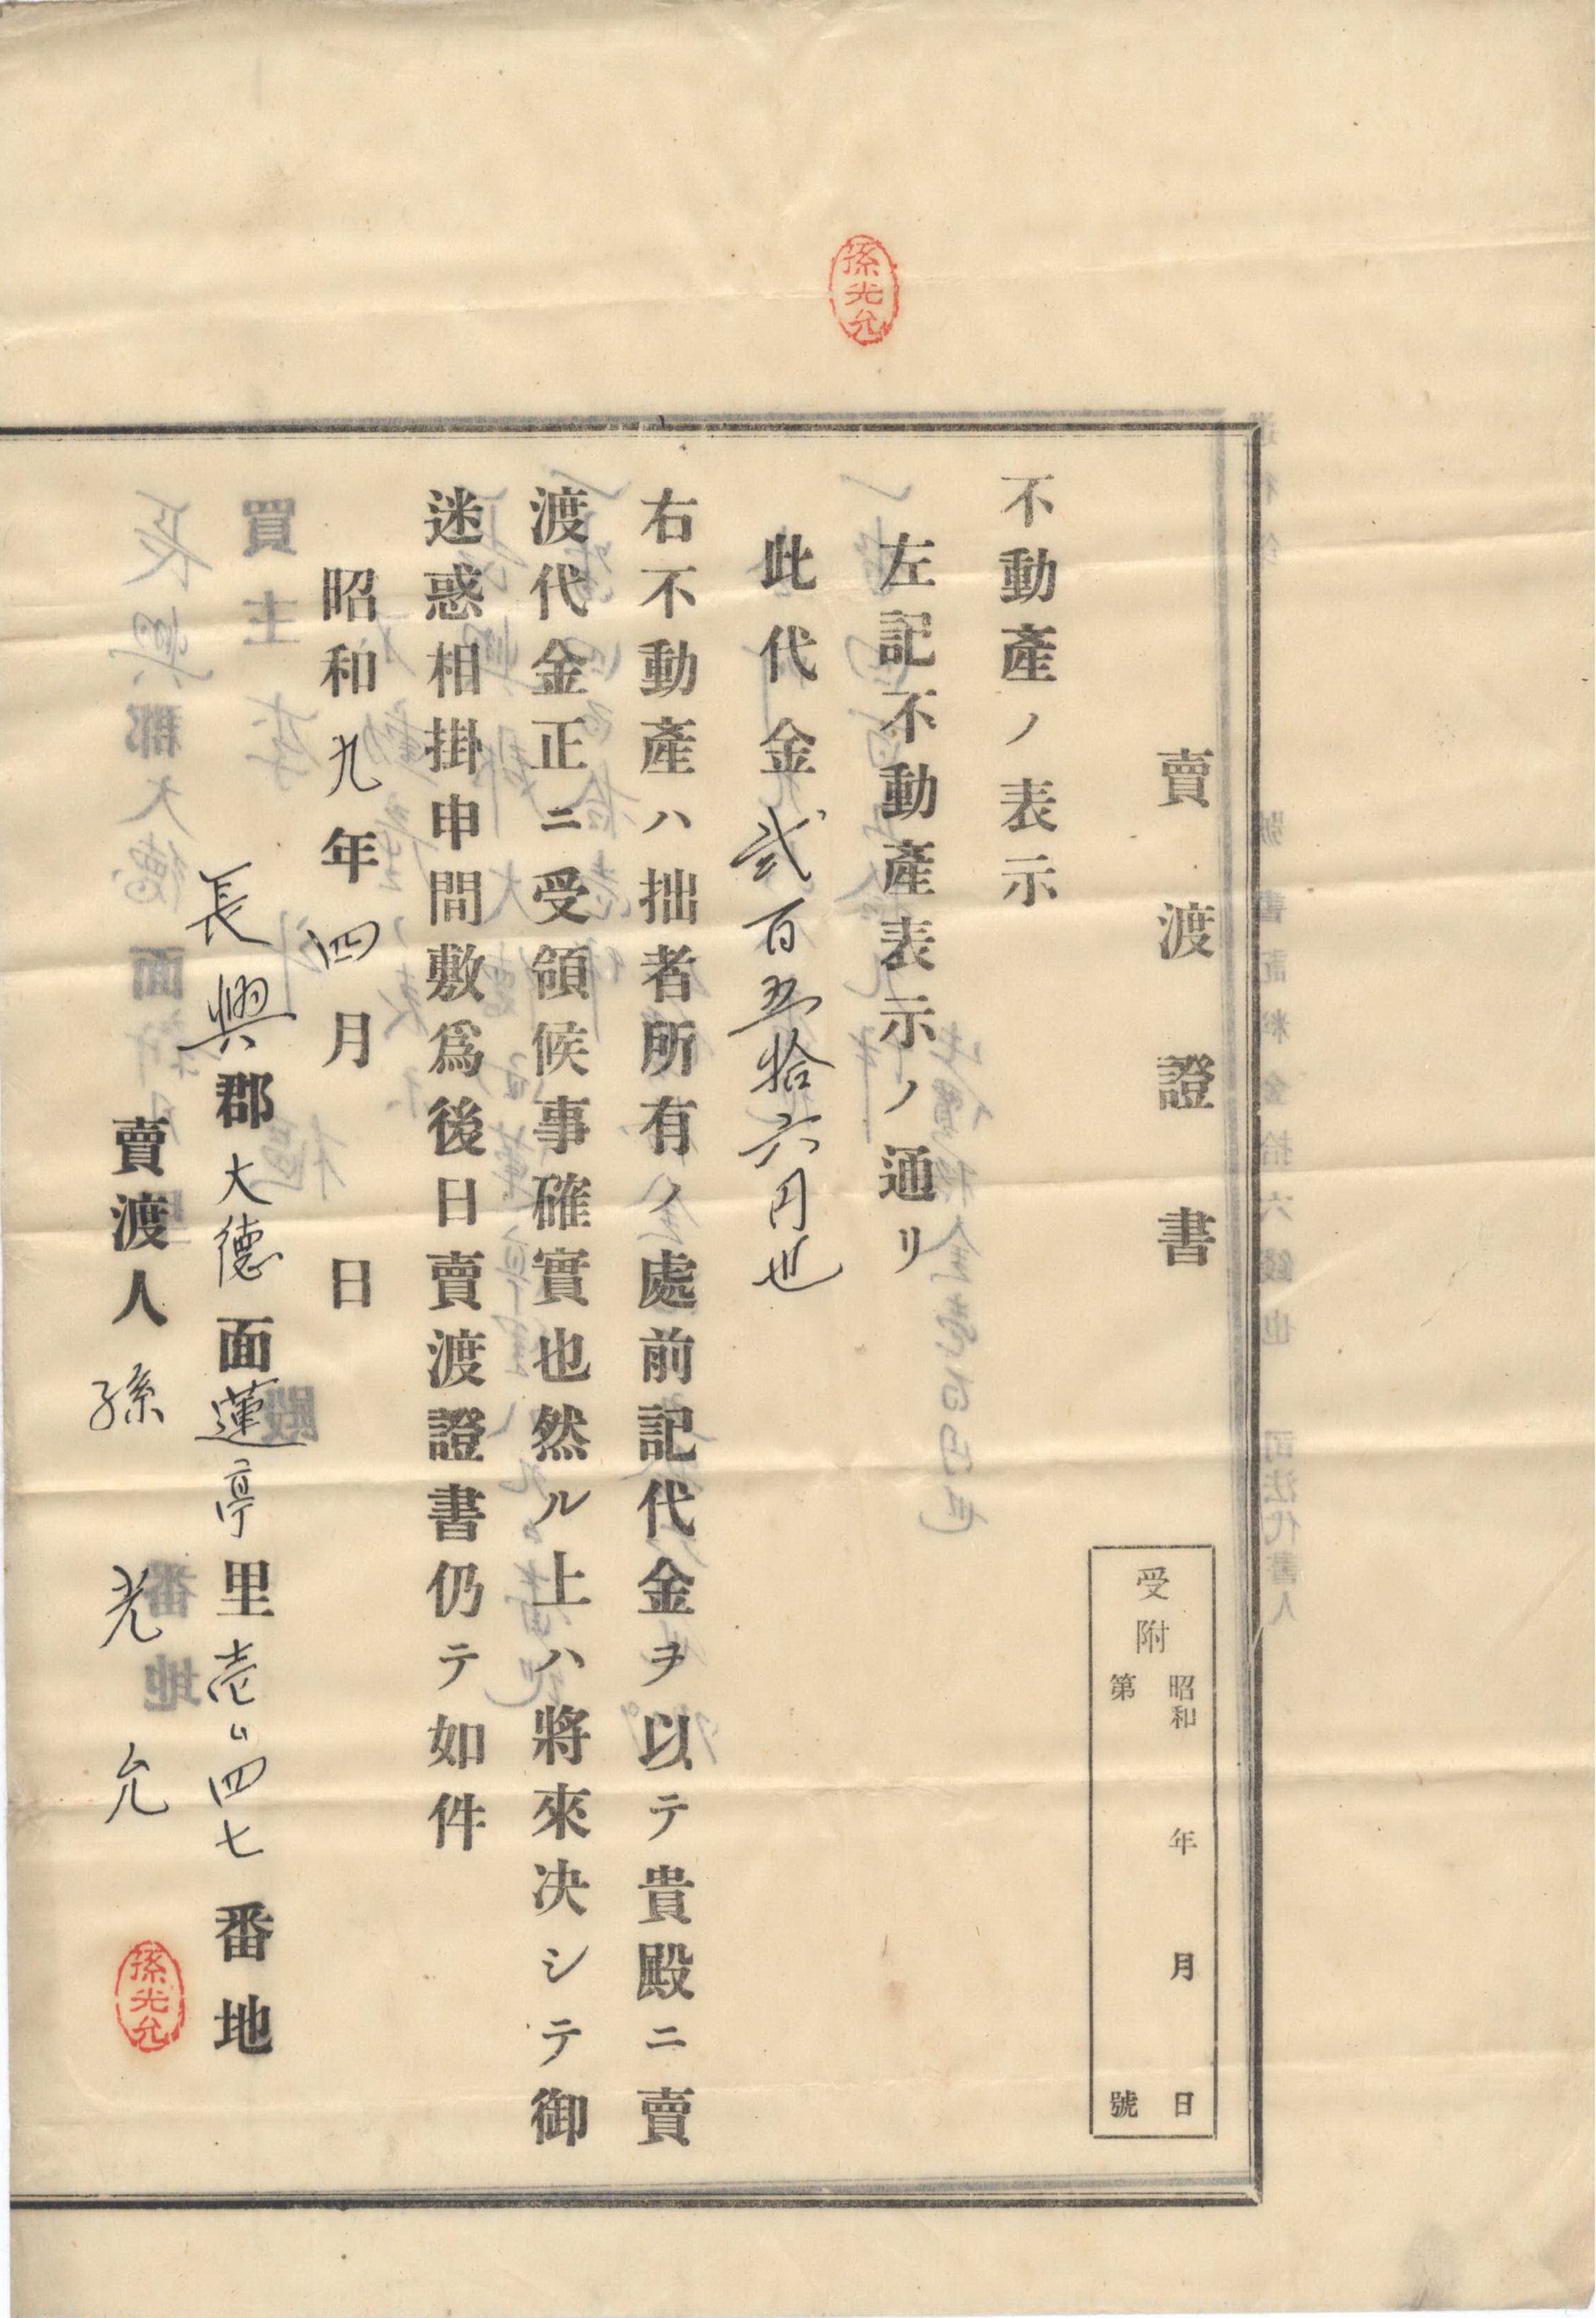 賣渡證書
受附
昭和 年 月 日
第 號
不動產ノ表示
左記不動產表示ノ通リ
此代金貳百五拾六円也
右不動產ハ拙者所有ノ處前記代金ヲ以テ貴殿ニ賣
渡代金正ニ受領候事確實也然ル上ハ將來決シテ御
迷惑相掛申間敷爲後日賣渡證書仍テ如件
昭和九年四月 日
長興郡大德面蓮亭里壱ノ四七番地
賣渡人 孫光允
孫光允
孫光允